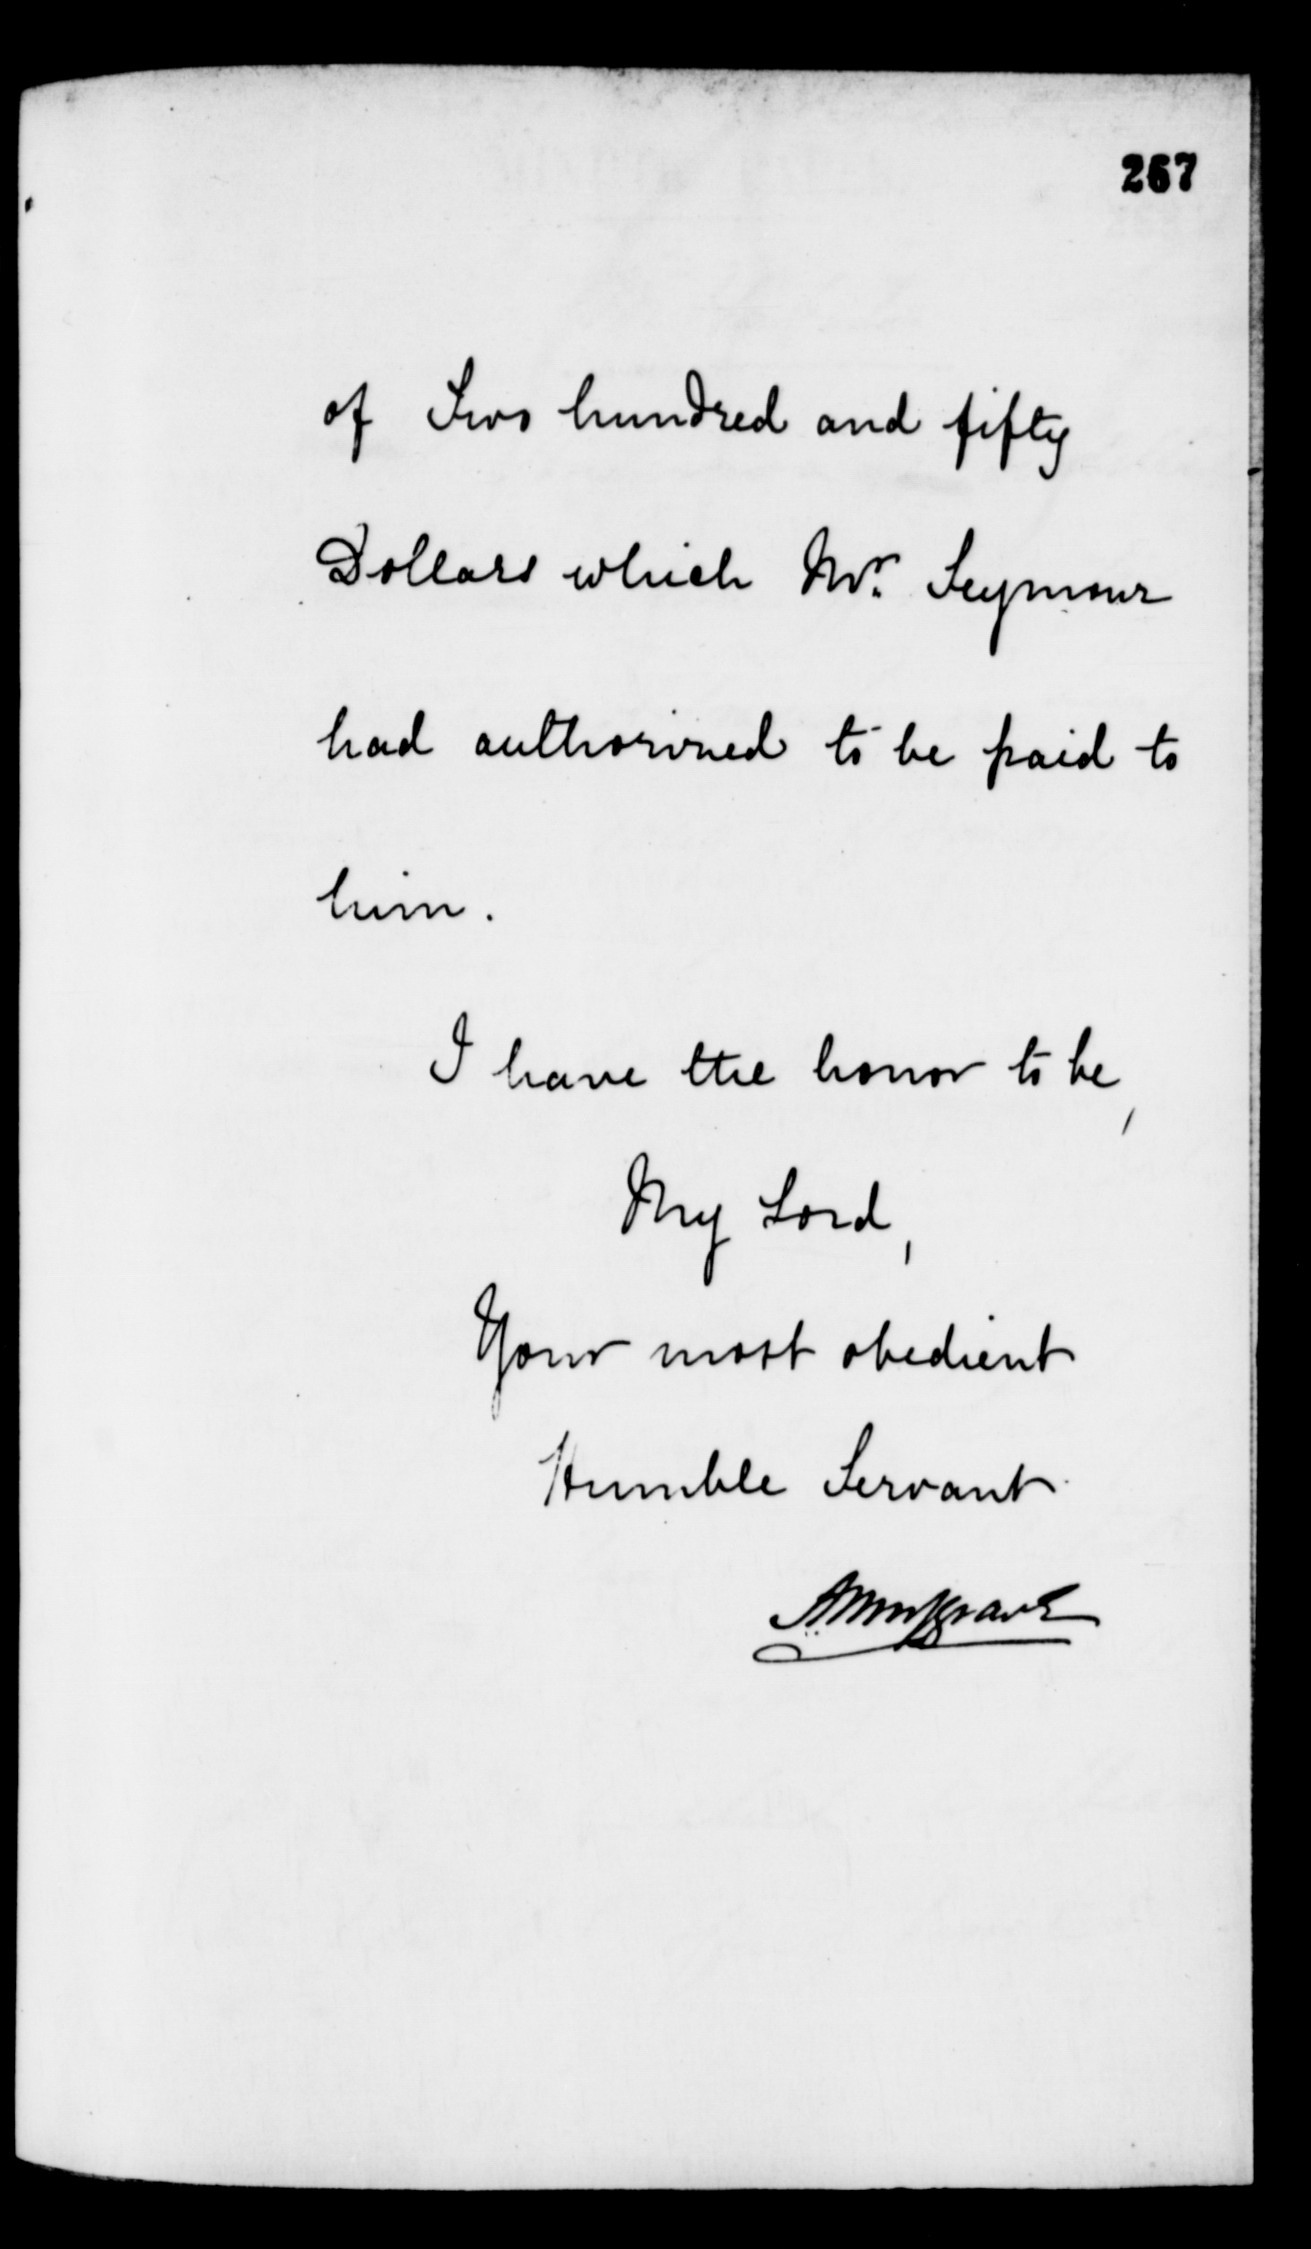 267
of Two hundred and fifty
Dollars which Mr. Seymour
had authorized to be paid to
him.
I have the honor to be,
My Lord,
Your most obedient
Humble Servant
AMusgrave